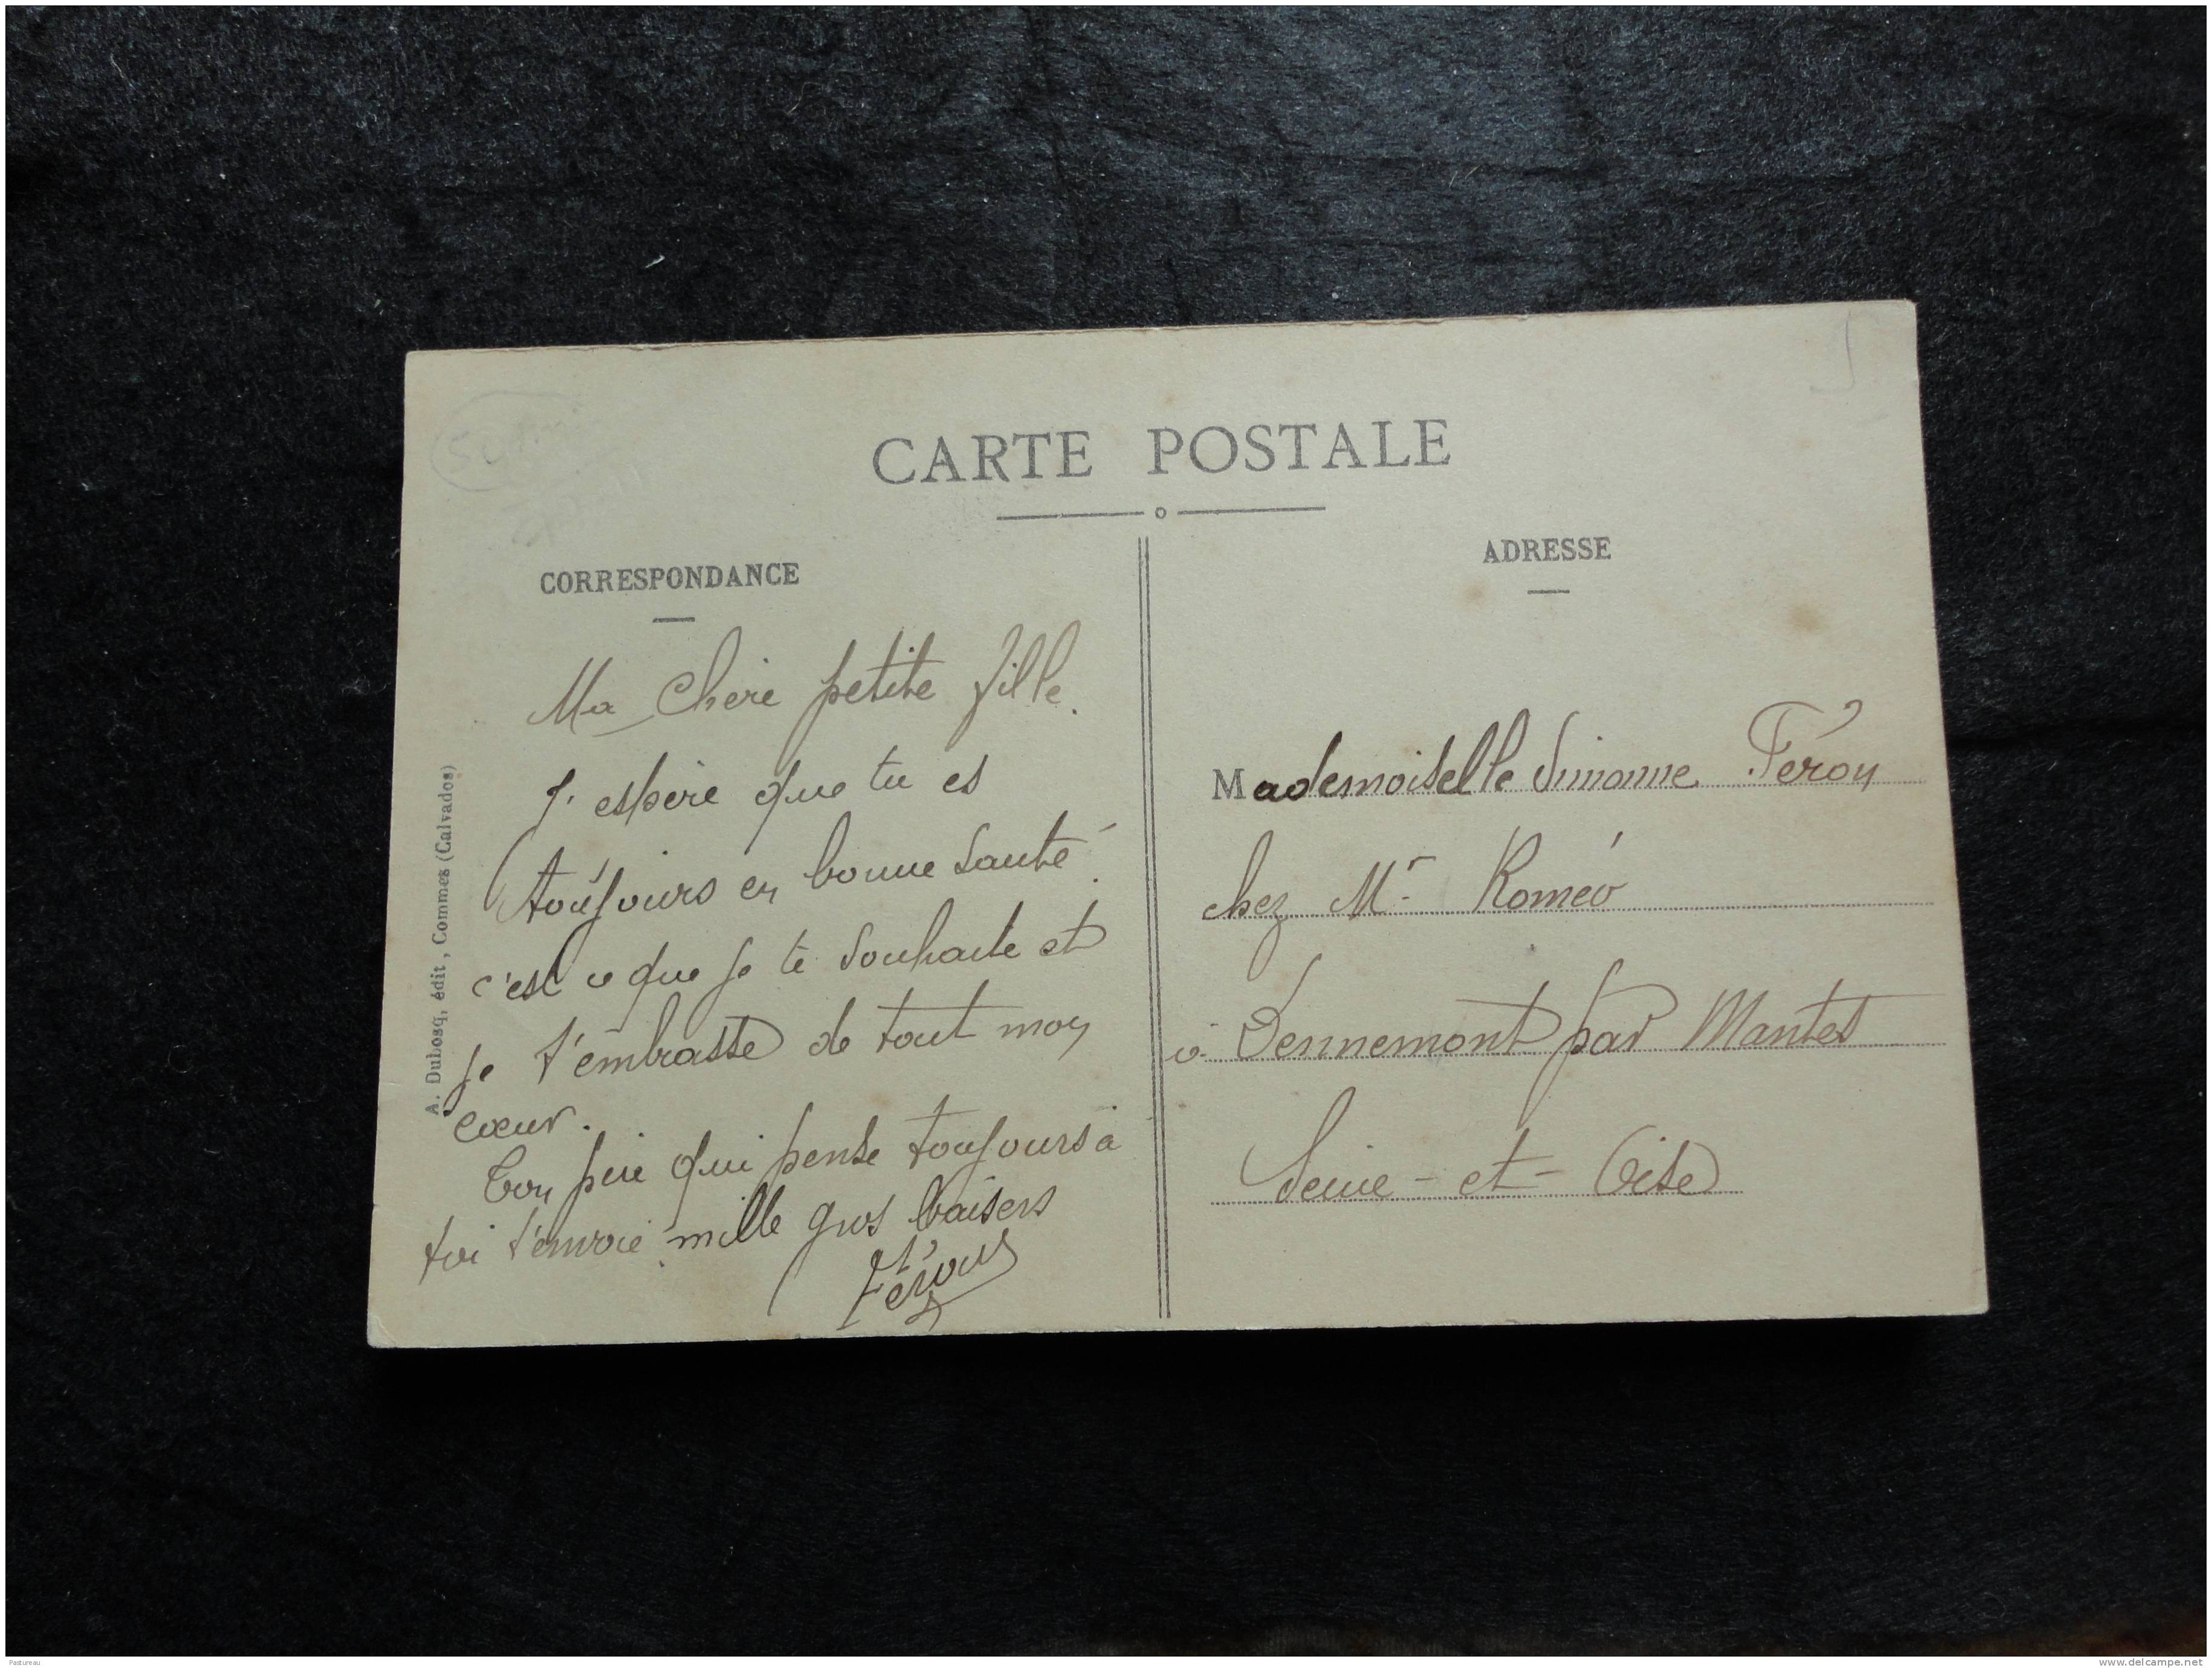 CARTE POSTALE
CORRESPONDANCE
Ma Chère petite fille.
J'espère que tu es
toujours en bonne santé.
c'est ce que je te souhaite et
je t'embrasse de tout mon
cœur.
Ton père qui pense toujours à
toi t'envoie mille gros baisers
Féron
A. Dubosq, édit, Commes (Calvados)
ADRESSE
Mademoiselle Simonne Féron
chez Mr Roméo
à Dennemont par Mantes
Seine-et-Oise
Pastureau
www.delcampe.net